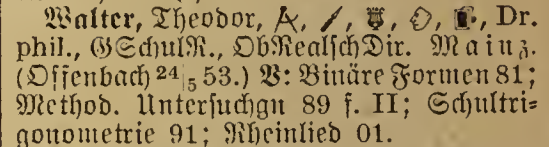 Walter, Theodor, Dr.
phil., GSchulR., ObRealschDir. Mainz.
(Offenbach 24/5 53.) V: Binäre Formen 81;
Method. Untersuchgn 89 f. II; Schultri-
gonometrie 91; Rheinlied 01.